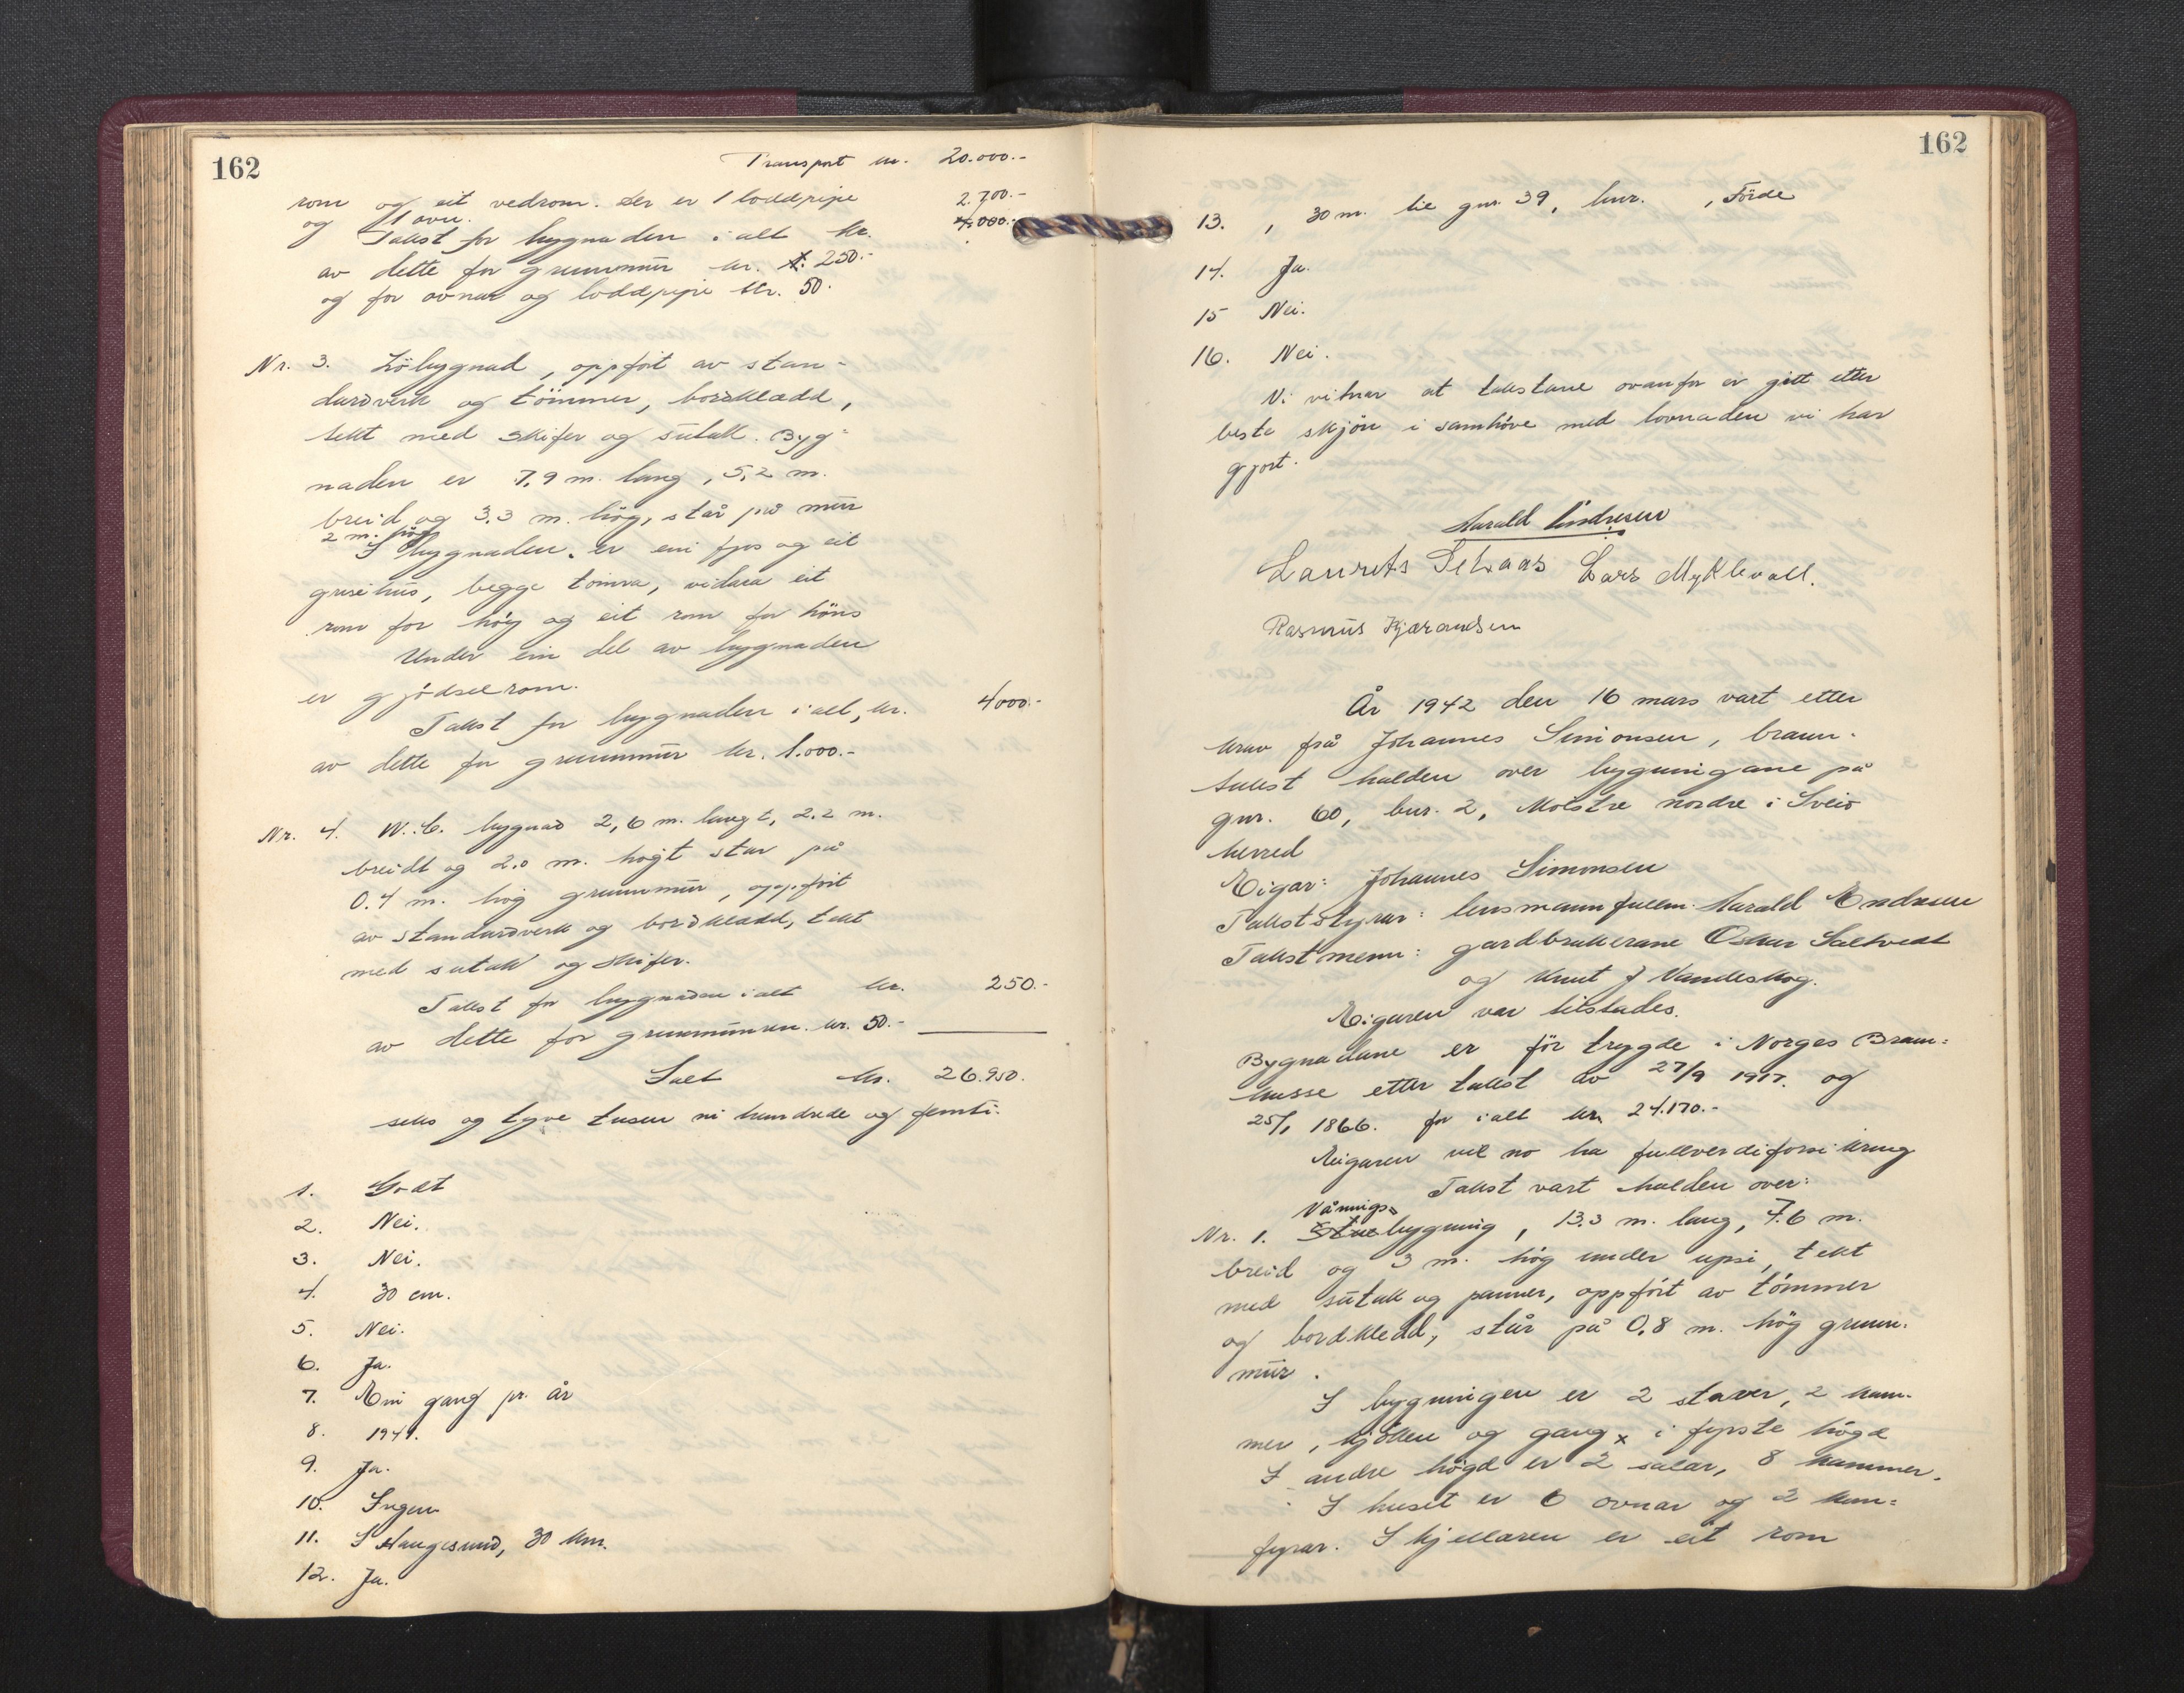 162
Transport kr. 20.000.-
rom og eit vedrom. Der er 1 loddpipe
og 1 ovn.
Takst for bygnaden i alt kr. 2.700.-
av dette for grunnmur kr. 250.-
og for ovnar og loddpipe kr. 50.
Nr. 3. Löbygnad, oppfört av stan-
dardverk og tömmer, bordklædd,
tekt med skifer og sutak. Byg-
naden er 7,9 m. lang, 5,2 m.
breid og 3.3 m. hög, står på mur
2 m. hög
I bygnaden er ein fjos og eit
grisehus, begge tömra, vidare eit
rom for höy og eit rom for höns
Under ein del av bygnaden
er gjödselrom.
Takst for bygnaden i alt, kr. 4000.-
av dette for grunnmur kr. 1.000.-
Nr. 4. W.C. bygnad 2,6 m. langt, 2.2 m.
breidt og 2.0 m. högt står på
0.4 m. hög grunnmur, oppfört
av standardverk og bordklædd, tekt
med sutak og skifer.
Takst for bygnaden i alt kr. 250.-
av dette for grunnmuren kr. 50.-
Ialt kr. 26.950.
seks og tyve tusen ni hundrede og femti.
1. Godt
2. Nei.
3. Nei.
4. 30 cm.
5. Nei.
6. Ja.
7. Ein gang pr. år
8. 1941.
9. Ja.
10. Ingen
11. I Haugesund, 30 km.
12. Ja.
162
13. , 30 m. til gnr. 39, bnr. , Förde
14. Ja.
15 Nei.
16. Nei.
Vi vitnar at takstane ovanfor er gitt etter
beste skjön i samhöve med lovnaden vi har
gjort.
Harald Endresen
Laurits Lars Myklevoll.
Rasmus
År 1942 den 16 mars vart etter
krav frå Johannes Simonsen, brann-
takst halden over bygningane på
gnr. 60, bnr. 2, Mölstre nordre i Sveio
herred
Eigar: Johannes Simonsen
Takststyrar: lensmannfullm. Harald Endresen
Takstmenn: gardbrukerane Oskar Saltvedt
og Knut J Vandeskog.
Eigaren var tilstades.
Bygnadane er för trygde i Norges Brann-
kasse etter takst av 27/9 1917. og
25/1 1866. for ialt kr. 24.170.-
Eigaren vil no ha fullverdiforsikring
Takst vart halden over:
Vånnings
Nr. 1. Stuebygning, 13.3 m. lang, 7.6 m.
breid og 3 m. hög under upsi, tekt
med sutak og panner, oppfört av tömmer
og bordkledd, står på 0,8 m. hög grunn-
mur.
I bygningen er 2 stover, 2 kam-
mer, kjöken og gang x i fyrste högd
I andre högd er 2 salar, 8 kammer.
I huset er 6 ovnar og 2 kom-
fyrar. I kjellaren er eit rom